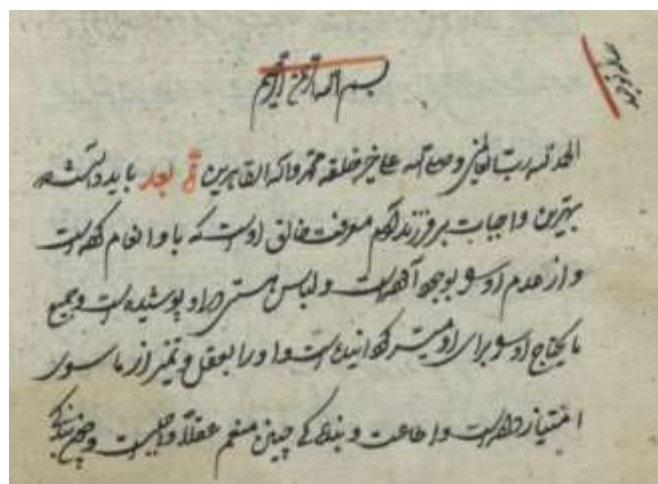 بسم الله الرحمن الرحیم
الحمد لله رب العالمین و صلی الله علی خیر خلقه محمد و اله الطاهرین و بعد باید دانست که
بهترین واجبات بر فرزند آدم معرفت خالق اوست که باو انعام کرده است
و از عدم او را بوجود آورده است و لباس هستی در او پوشیده است و جمیع
ما یحتاج او را برای او میسر گردانیده است و او را بعقل و تمیز از ما سوی
امتیاز داده است و اطاعت و بندگی چنین منعم عقلاً واجبست و